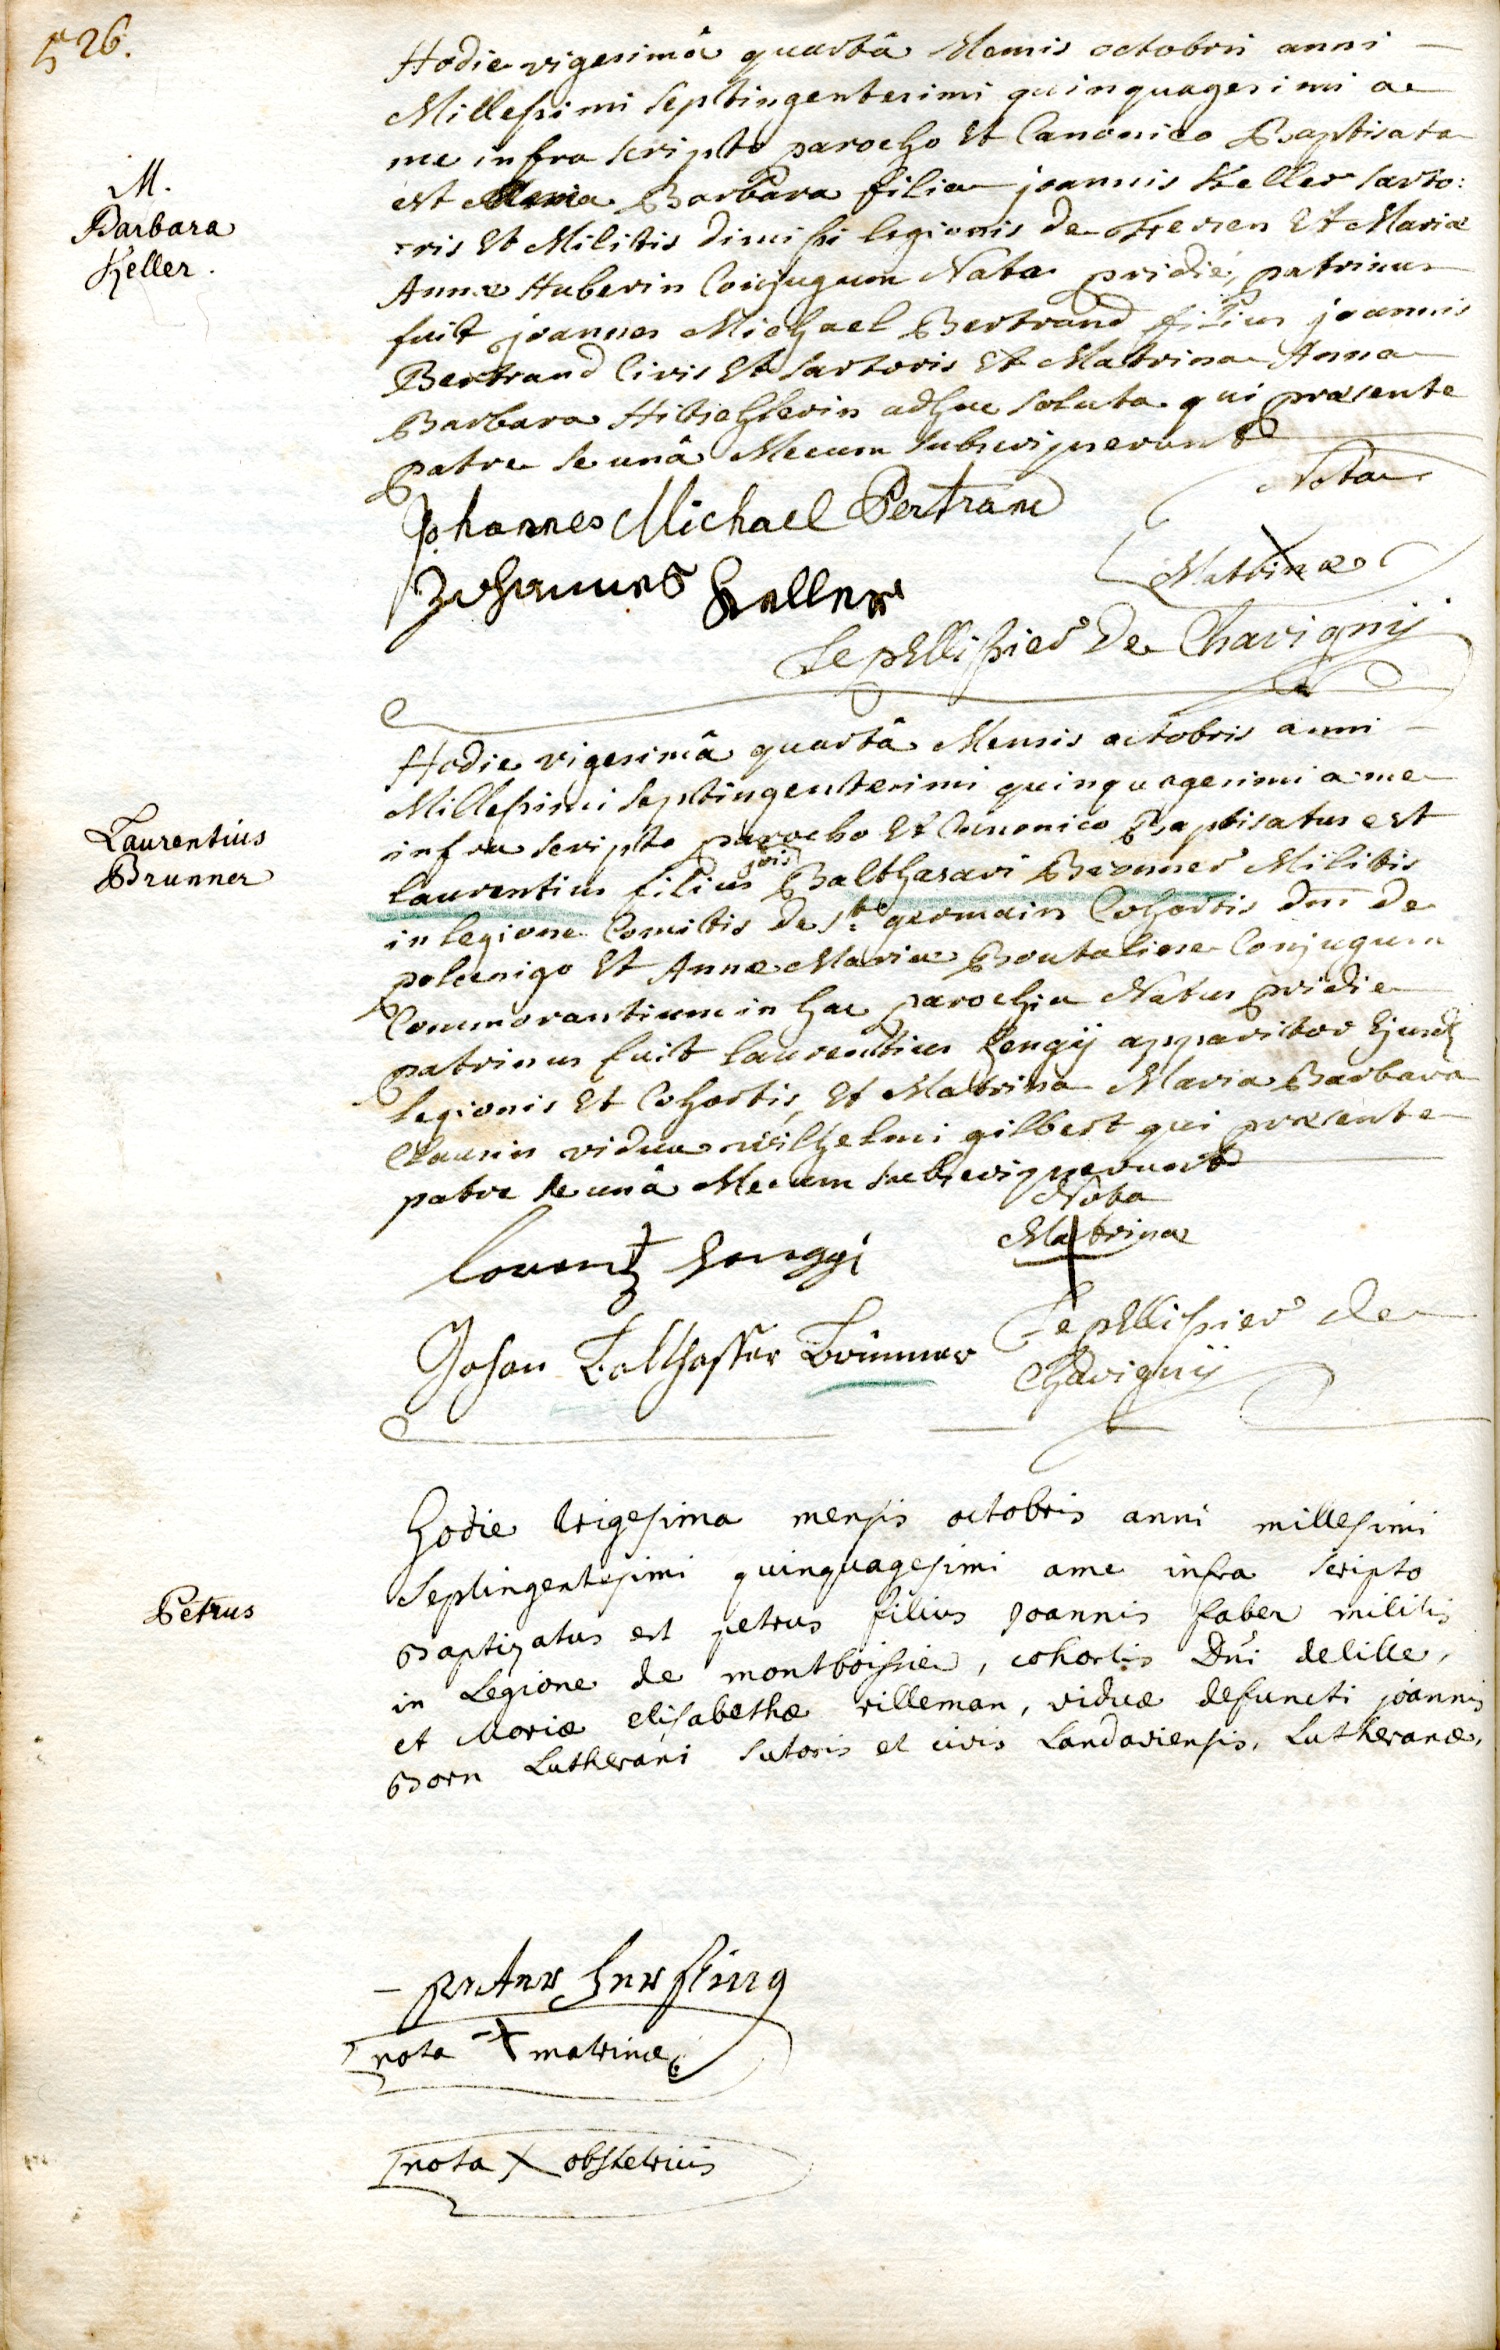 526.
Hodie vigesimâ quartâ Mensis octobris anni
Millesimi septingentesimi quinquagesimi a
me infra scripto parocho Et Canonico Baptisata
est Maria Barbara filia joannis Keller sarto:
-ris Et Militis dimissi legionis de Et Mariæ
Annæ Huberin Conjugum Nata pridie, patrinus
fuit joannes Michael Bertrand filius joannis
Bertrand Civis Et sartoris Et Matrina Anna
Barbara adhuc soluta qui præsente
patre se unâ Mecum subscripserunt
M.
Barbara
Keller.
Johannes Michael Pertrand
Nota
Johannes Keller
Matrinæ
Lepellissier De Chavignÿ
Hodie vigesimâ quartâ Mensis octobris anni
Millesimi septingentesimi quinquagesimi a me
infra scripto parocho Et Canonico Baptisatus est
jois
laurentius filius Balthasari Bronner Militis
in legione Comitis de st. germain Cohortis dni de
polcenigo Et Annæ Mariæ Conjugum
Commorantium in hac parochia Natus pridie
patrinus fuit laurentius Hengÿ apparitor Ejusd
legionis Et Cohortis, Et Matrina Maria Barbara
vidua wilhelmi gilbert qui præsente
patre se unâ Mecum subscripserunt
Laurentius
Brunner
Nota
Matrinæ
Lorentz Henggi
Johan Balthassar Brunner
Lepellissier de
Chavignÿ
hodie trigesima mensis octobris anni millesimi
septingentesimi quinquagesimi a me infra scripto
Baptizatus est petrus filius Joannis faber militis
in Legione de montboissier, cohortis Dni delille,
et Mariæ elisabethæ villeman, viduæ defuncti joannis
Born Lutherani sutoris et civis Landaviensis, Lutheranæ,
Petrus
nota + matrinæ
nota + obstetricis